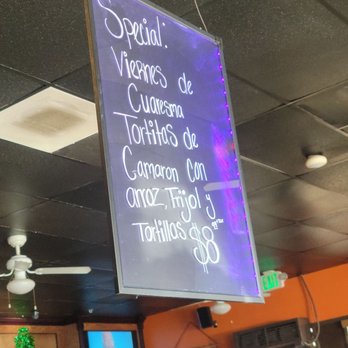 Special:
Viernes de
Cuaresma
Tortitas de
Camaron con
arroz, Frijol y
Tortillas $8
EXIT